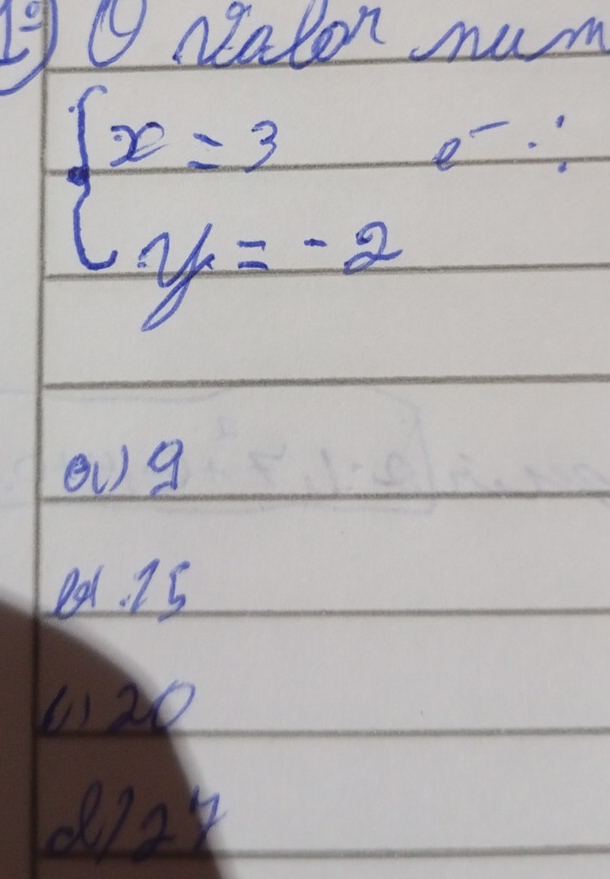 1º) O valor num
{ x = 3 e :
y = -2
a) 9
b) 15
c) 20
d) 27